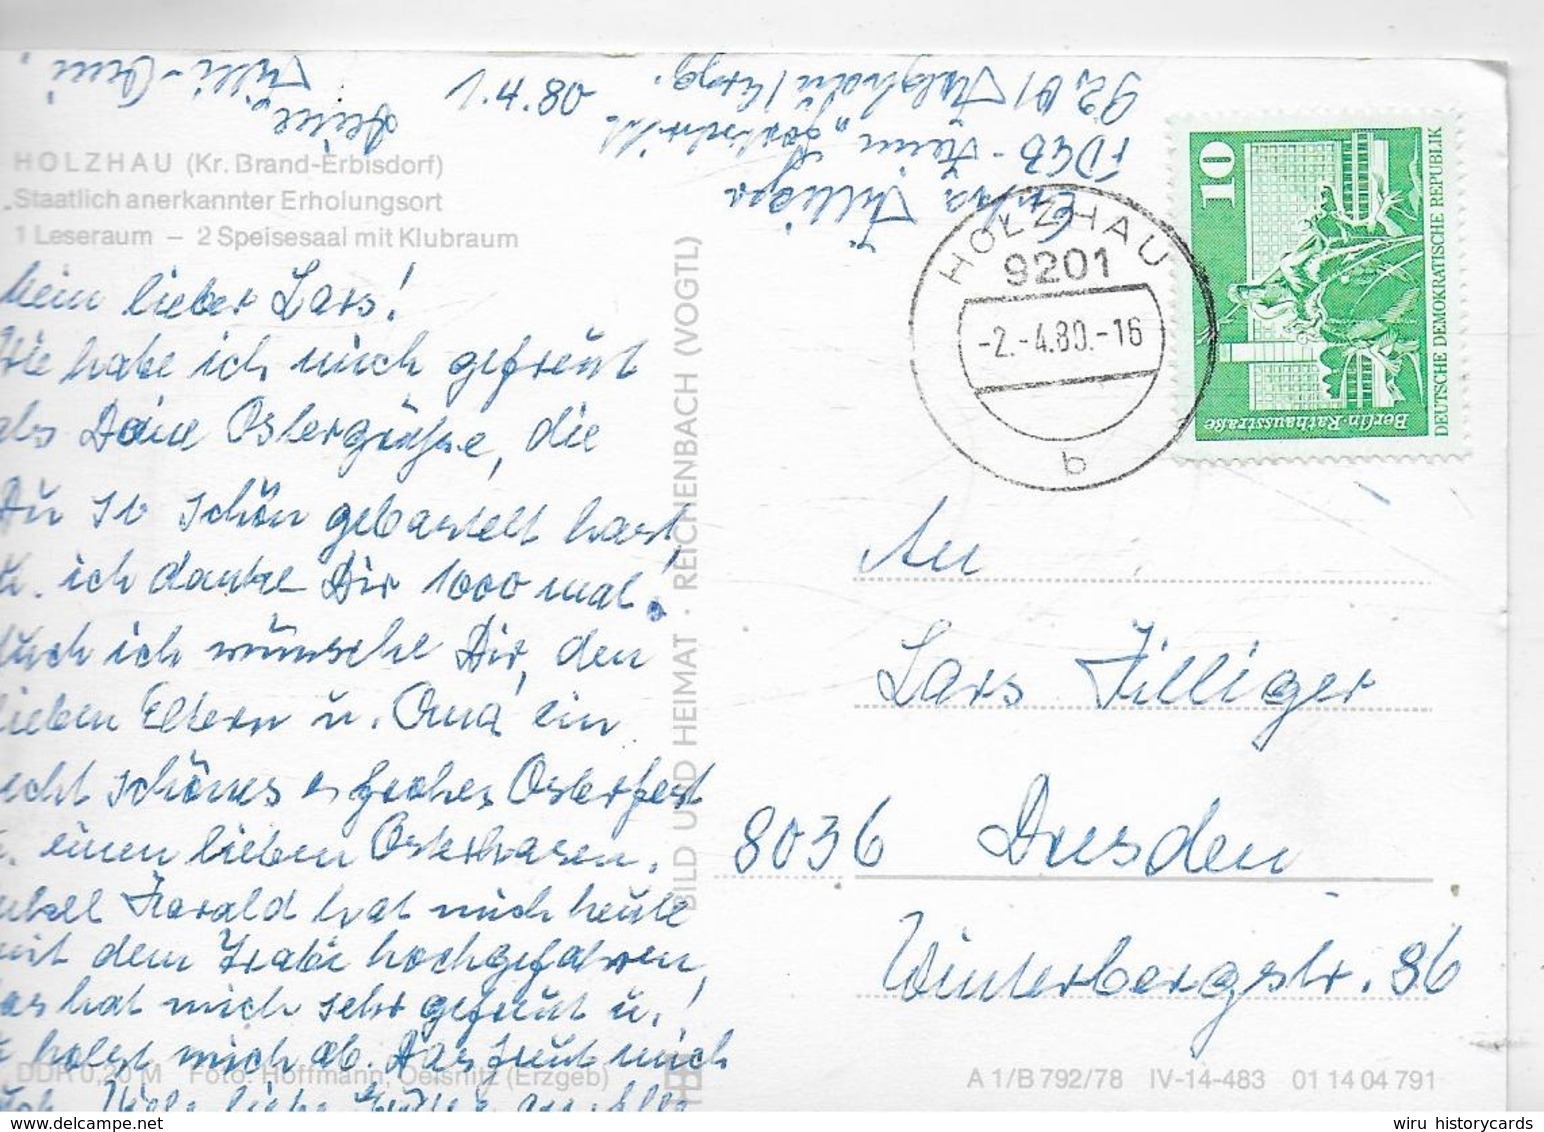 HOLZHAU (Kr. Brand-Erbisdorf)
Staatlich anerkannter Erholungsort
1 Leseraum – 2 Speisesaal mit Klubraum
Mein lieber Lars!
Wie habe ich mich gefreut
als Deine Ostergrüße, die
Du so schön gebastelt hast,
u. ich danke Dir 1000 mal.
Auch ich wünsche Dir, den
lieben Eltern u. Oma ein
recht schönes frohes Osterfest
u. einen lieben Osterhasen.
Onkel Harald hat mich heute
mit dem Trabi hochgefahren,
das hat mich sehr gefreut u.
holst mich ab. Das freut mich
auch. Viele liebe Grüße an Alle
Deine
1.4.80
Erika Zilliger
FDGB-Heim „Fortschritt“
9201 Holzhau/Erzg.
HOLZHAU
9201
-2.-4.80.-16
b
10
Berlin·Rathausstraße
DEUTSCHE DEMOKRATISCHE REPUBLIK
An
Lars Zilliger
8036 Dresden
Winterbergstr. 86
BILD UND HEIMAT · REICHENBACH (VOGTL)
DDR 0,20 M Foto: Hoffmann, Oelsnitz (Erzgeb)
A 1/B 792/78 IV-14-483 01 14 04 791
wiru historycards